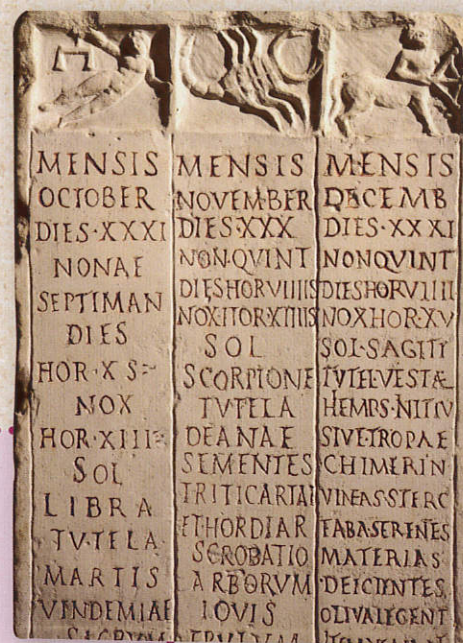 MENSIS
OCTOBER
DIES·XXXI
NONAE
SEPTIMAN
DIES
HOR·X S
NOX
HOR·XIII
SOL
LIBRA
TVTELA
MARTIS
VINDEMIAE
SACRVM
MENSIS
NOVEMBER
DIES·XXX
NON·QVINT
DIES HOR VIIIIS
NOX·HOR·XIIIIS
SOL
SCORPIONE
TVTELA
DEANAE
SEMENTES
TRITICARIAE
ET HORDIAR
SCROBATIO
ARBORVM
IOVIS
MENSIS
DECEMB
DIES·XXXI
NON QVINT
DIES HOR VIIII
NOX HOR XV
SOL·SAGITT
TVTEL·VESTAE
HEMPS·NITIV
SIVE·TROPAE
CHIMERIN
VINEAS·STERC
FABA SERENTES
MATERIAS
DEICIENTES
OLIVA LEGENT